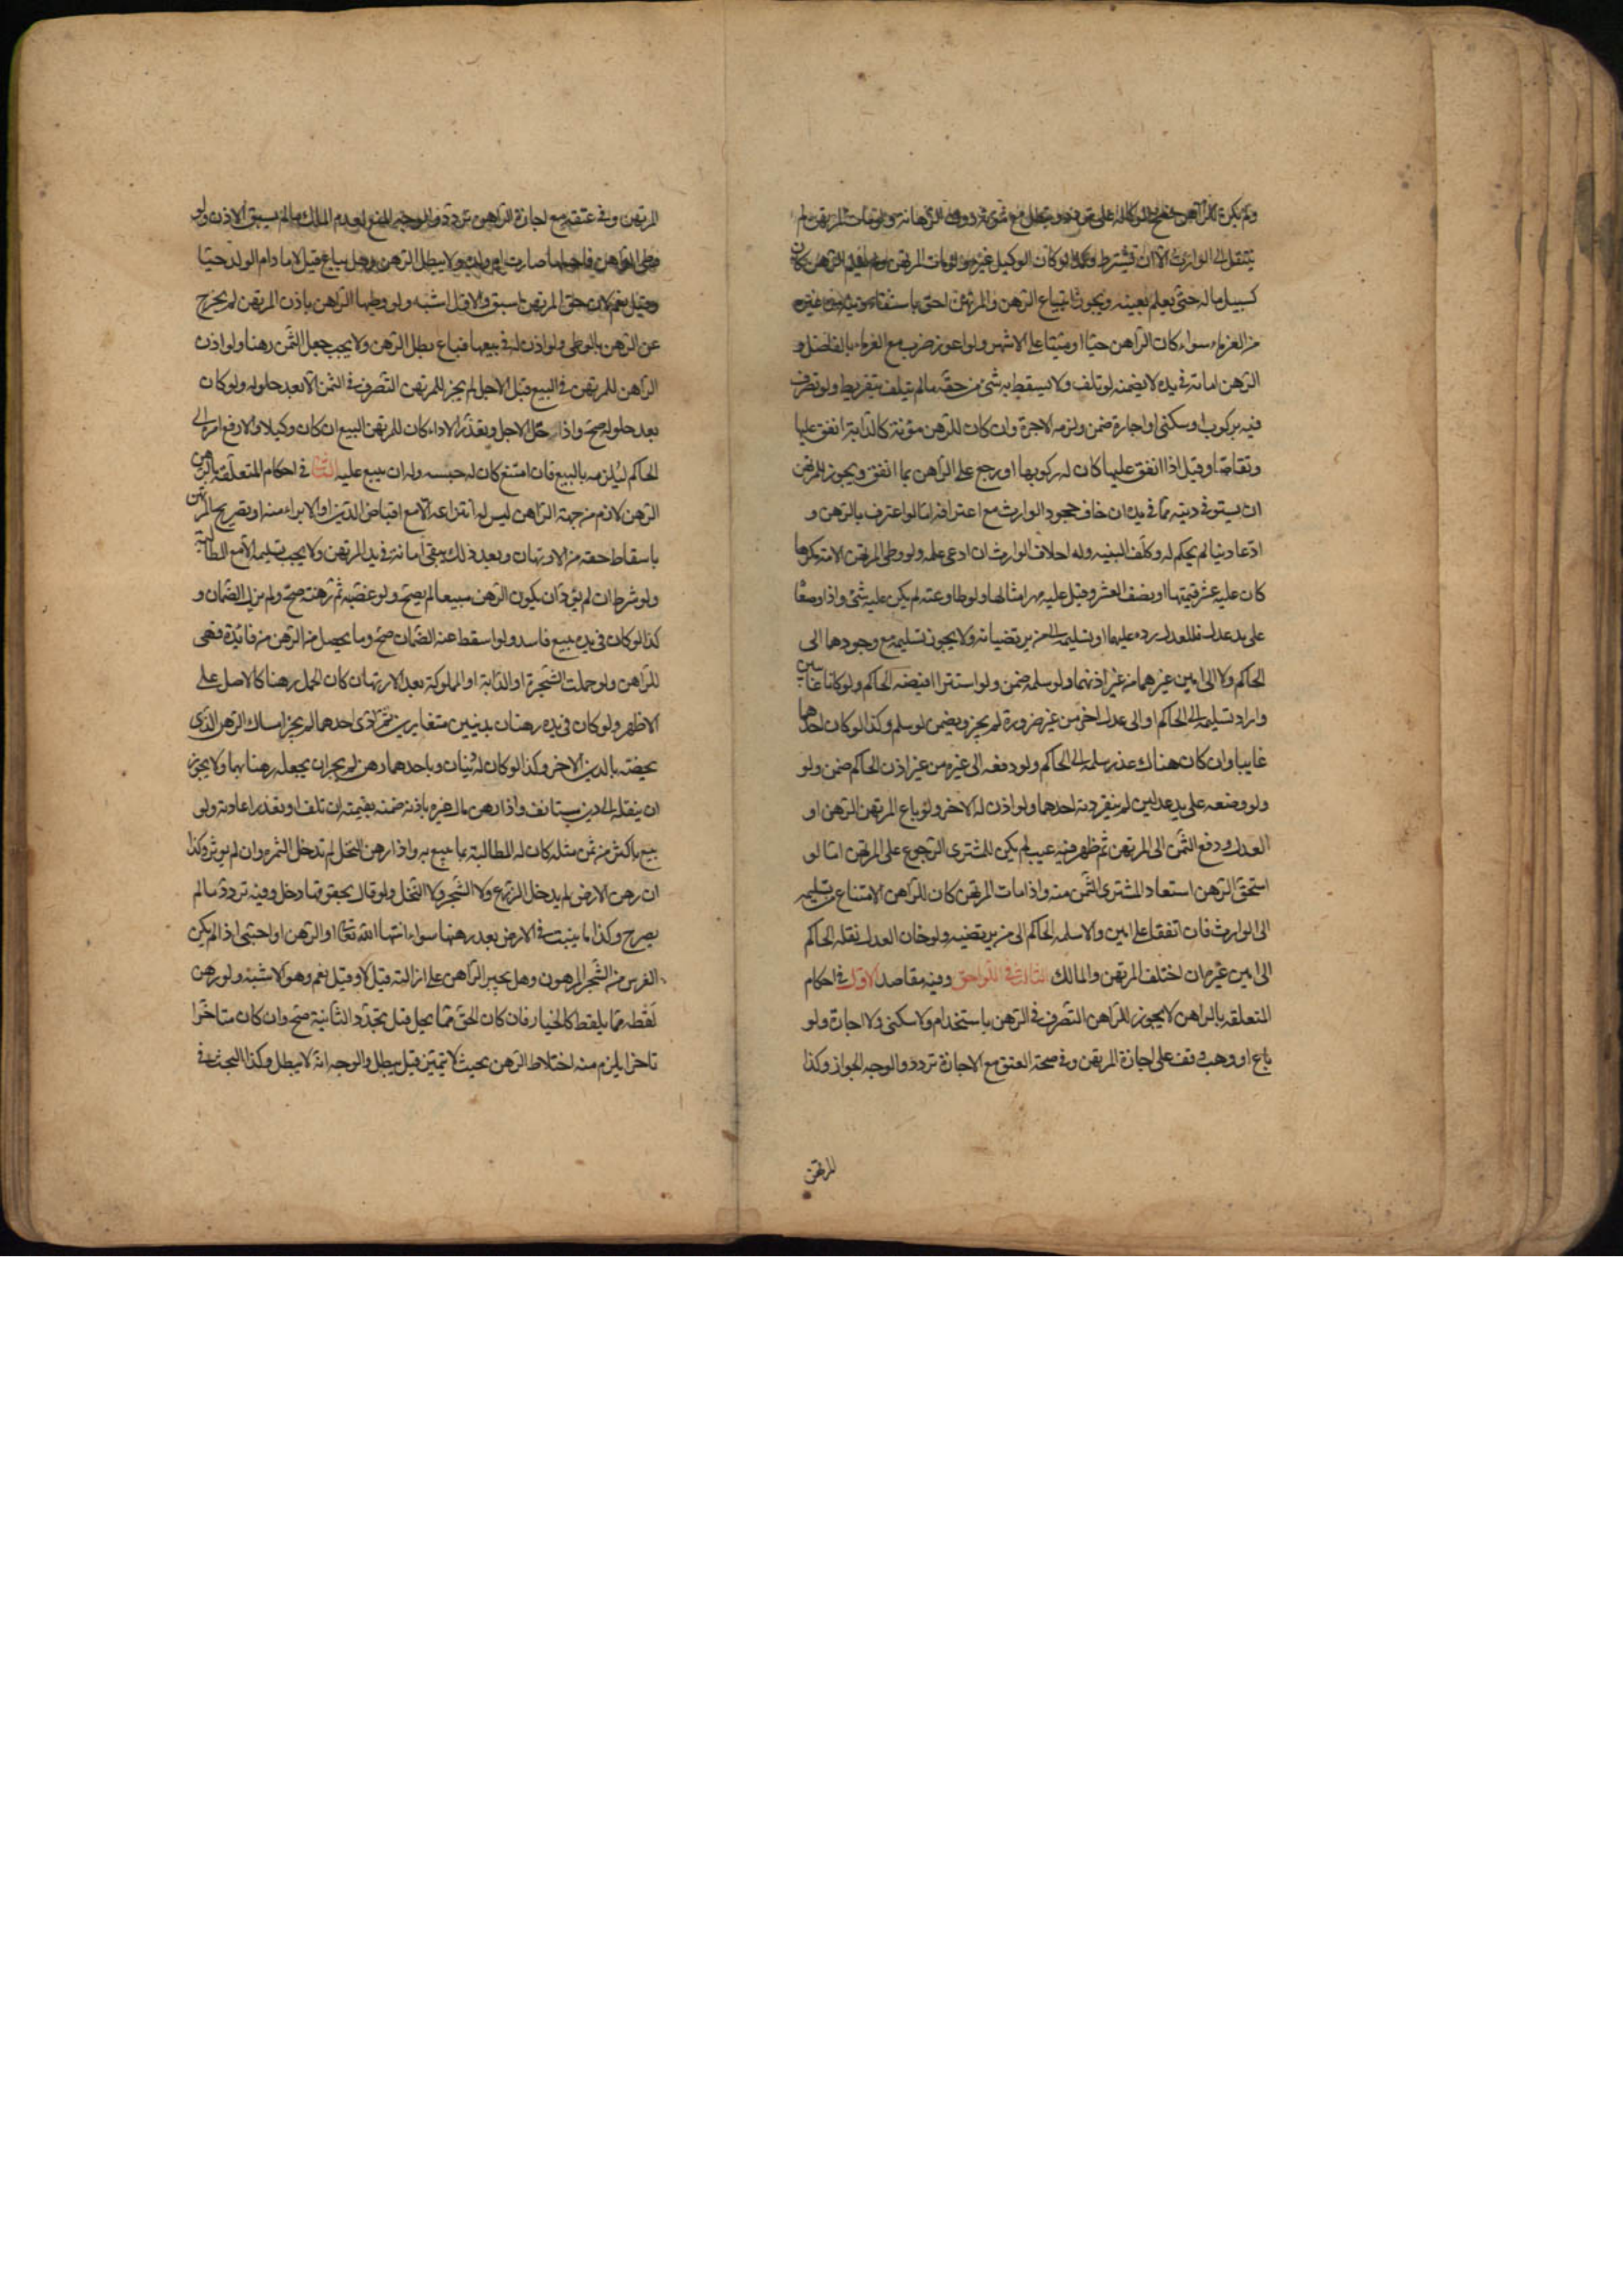 ولم يكن للراهن فسخ الوكالة على تردد وتبطل مع موته دون الرهانة ولو مات المرتهن لم
ينتقل الى الوارث الا ان يشترطه وكذا لو كان الوكيل غيره ولو مات المرتهن ولم يعلم الرهن كان
كسبيل ماله حتى يعلم بعينه ويجوز ابتياع الرهن والمرتهن احق باستيفاء دينه من غيره
من الغرماء سواء كان الراهن حيا او ميتا على الاشهر ولو اعوز ضرب مع الغرماء بالفاضل و
الرهن امانة في يده لا يضمنه لو تلف ولا يسقط به شئ من حقه مالم يتلف بتفريط ولو تصرف
فيه بركوب او سكنى او اجارة ضمن ولزمه الاجرة وان كان للرهن مؤنة كالدابة انفق عليها
وتقاصا وقيل اذا انفق عليها كان له ركوبها او رجع على الراهن بما انفق ويجوز للمرتهن
ان يستوفي دينه مما في يده ان خاف جحود الوارث مع اعترافه اما لو اعترف بالرهن و
ادعا دينا لم يحكم له وكلف البينه وله احلاف الوارث ان ادعى علمه ولو وطى المرتهن الامة مكرها
كان عليه عشر قيمتها او نصف العشر وقيل عليه مهر امثالها ولو طاوعته لم يكن عليه شئ واذا وضعا
على يد عدل فللعدل رده عليهما او تسليمه الى من يرتضيانه ولا يجوز تسليمه مع وجودهما الى
الحاكم ولا الى امين غيرهما من غير اذنهما ولو سلمه ضمن ولو استترا اقبضه الحاكم ولو كانا غايبين
واراد تسليمه الى الحاكم او الى عدل اخر من غير ضرورة لم يجز ويضمن لو سلم وكذا لو كان احدهما
غايبا وان كان هناك عذر سلمه الى الحاكم ولو دفعه الى غيره من غير اذن الحاكم ضمن ولو
ولو وضعه على يد عدلين لم ينفرد به احدهما ولو اذن له الاخر ولو باع المرتهن الرهن او
العدل ودفع الثمن الى المرتهن ثم ظهر فيه عيب لم يكن للمشترى الرجوع على المرتهن اما لو
استحق الرهن استعاد المشترى الثمن منه واذا مات المرتهن كان للراهن الامتناع من تسليمه
الى الوارث فان اتفقا على امين والا سلمه الحاكم الى من يرتضيه ولو خان العدل نقله الحاكم
الى امين غيره ان اختلف المرتهن والمالك الثالث في اللواحق وفيه مقاصد الاول في احكام
المتعلقه بالراهن لا يجوز للراهن التصرف في الرهن باستخدام ولا سكنى ولا اجارة ولو
باع او وهب وقف على اجازة المرتهن وفي صحة العتق مع الاجازة تردد والوجه الجواز وكذا
للمرتهن
المرتهن وفي عتقه مع اجازة الراهن تردد والوجه المنع لعدم الملك مالم يسبق الاذن ولو
وطى الراهن فاحبلها صارت ام ولده ولا يبطل الرهن وهل يباع قيل لا ما دام الولد حيا
وقيل نعم لان حق المرتهن اسبق والاول اشبه ولو وطيها الراهن باذن المرتهن لم يخرج
عن الرهن بالوطى ولو اذن له في بيعها فباع بطل الرهن ولا يجب جعل الثمن رهنا ولو اذن
الراهن للمرتهن في البيع قبل الاجل لم يجز للمرتهن التصرف في الثمن الا بعد حلوله ولو كان
بعد حلوله صح واذا حل الاجل وتعذر الاداء كان للمرتهن البيع ان كان وكيلا والا رفع امره الى
الحاكم ليلزمه بالبيع فان امتنع كان له حبسه وله ان يبيع عليه الثاني في احكام المتعلقه بالرهن
الرهن لازم من جهة الراهن ليس له انتزاعه الا مع اقباض الدين او الابراء منه او تصريح المرتهن
باسقاط حقه من الارتهان وبعد ذلك يبقى امانة في يد المرتهن ولا يجب تسليمه الا مع المطالبة
ولو شرط ان لم يؤد ان يكون الرهن مبيعا لم يصح ولو غصبه ثم رهنه صح ولم يزل الضمان و
كذا لو كان في يده ببيع فاسد ولو اسقط عنه الضمان صح وما يحصل من الرهن من فائدة فهى
للراهن ولو حملت الشجرة او الدابة او المملوكة بعد الارتهان كان الحمل رهنا كالاصل على
الاظهر ولو كان في يده رهنان بدينين متغايرين ثم ادى احدهما لم يجز امساك الرهن الذى
يخصه بالدين الاخر وكذا لو كان له دينان وباحدهما رهن لم يجز ان يجعله رهنا بهما ولا يجوز
ان ينقله الى دين مستانف واذا رهن مال غيره باذنه ضمنه بقيمته ان تلف او تعذر اعادته ولو
بيع باكثر من ثمن مثله كان له المطالبة بما بيع به واذا رهن النخل لم تدخل الثمره وان لم يوبر وكذا
ان رهن الارض لم يدخل الزرع ولا الشجر ولا النخل ولو قال بحقوقها دخل وفيه تردد مالم
يصرح وكذا ما ينبت في الارض بعد رهنها سواء انبتها الله تعالى او الراهن او اجنبى اذا لم يكن
الغرس من الشجر المرهون وهل يجبر الراهن على ازالته قيل لا وقيل نعم وهو الاشبه ولو رهن
لقطه مما يلقط كالخيار فان كان الحق مما يحل قبل تجدد الثانية صح وان كان متاخرا
تاخرا يلزم منه اختلاط الرهن بحيث لا يتميز قيل يبطل والوجه انه لا يبطل وكذا البحث في